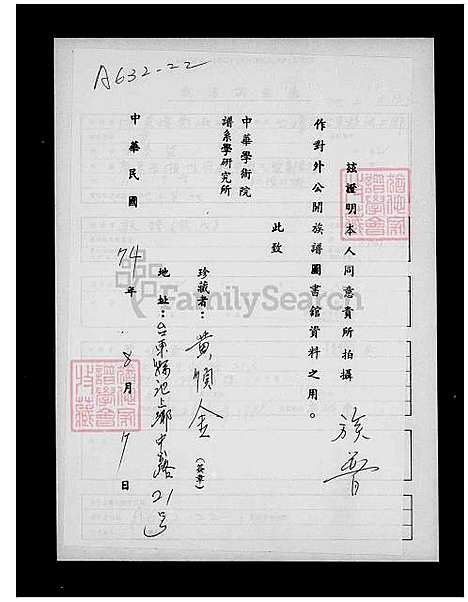 A632-22
茲證明本人同意貴所拍攝 族譜
作對外公開族譜圖書館資料之用。
此致
中華學術院
譜系學研究所
珍藏者：黃順金（簽章）
地址：台東縣池上鄉中路21号
中華民國74年8月7日
FamilySearch